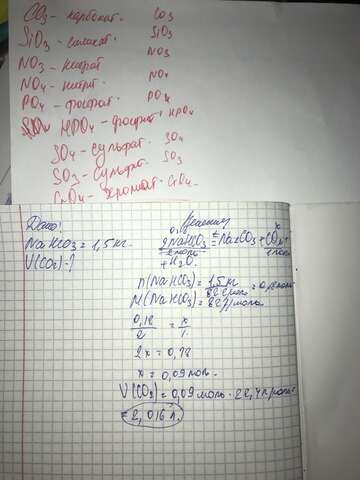 CO3 - карбонат. CO3
SiO3 - силикат. SiO3
NO3 - нитрат NO3
NO4 - нитрит. NO4
PO4 - фосфат. PO4
HPO4 - фосфат. HPO4
SO4 - сульфат. SO4
SO3 - сульфат. SO3
CrO4 - хромат - CrO4
Дано: Решение
NaHCO3 = 1,5 кг.
V(CO2) - ?
2NaHCO3 t= Na2CO3 + CO2 +
2 моль 1 моль
+ H2O.
n(NaHCO3) = 1,5 кг
M(NaHCO3) = 82 г/моль
0,18 / 2 = x / 1
2x = 0,18
x = 0,09 моль.
V(CO2) = 0,09 моль · 22,4 л/моль
= 2,016 л.